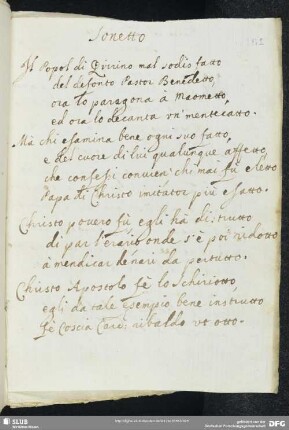 Sonetto
Il Popol di Quirino mal sodisfatto
del defonto Pastor Benedetto,
ora lo paragona à Maometto,
ed ora lo decanta un' mentecatto.
Mà chi esamina bene ogni suo fatto,
e del cuore di lui qualunque affetto,
che confessi convien' chi mai fù eletto
Papa di Christo imitator più esatto.
Christo povero fù egli hà distrutto
di par l'erario onde s'è poi ridotto
à mendicar denari da per tutto.
Christo Apostolo fè lo
egli da tale Esempio bene instrutto
fè Coscia Card: ribaldo ut otto.
SLUB
DFG